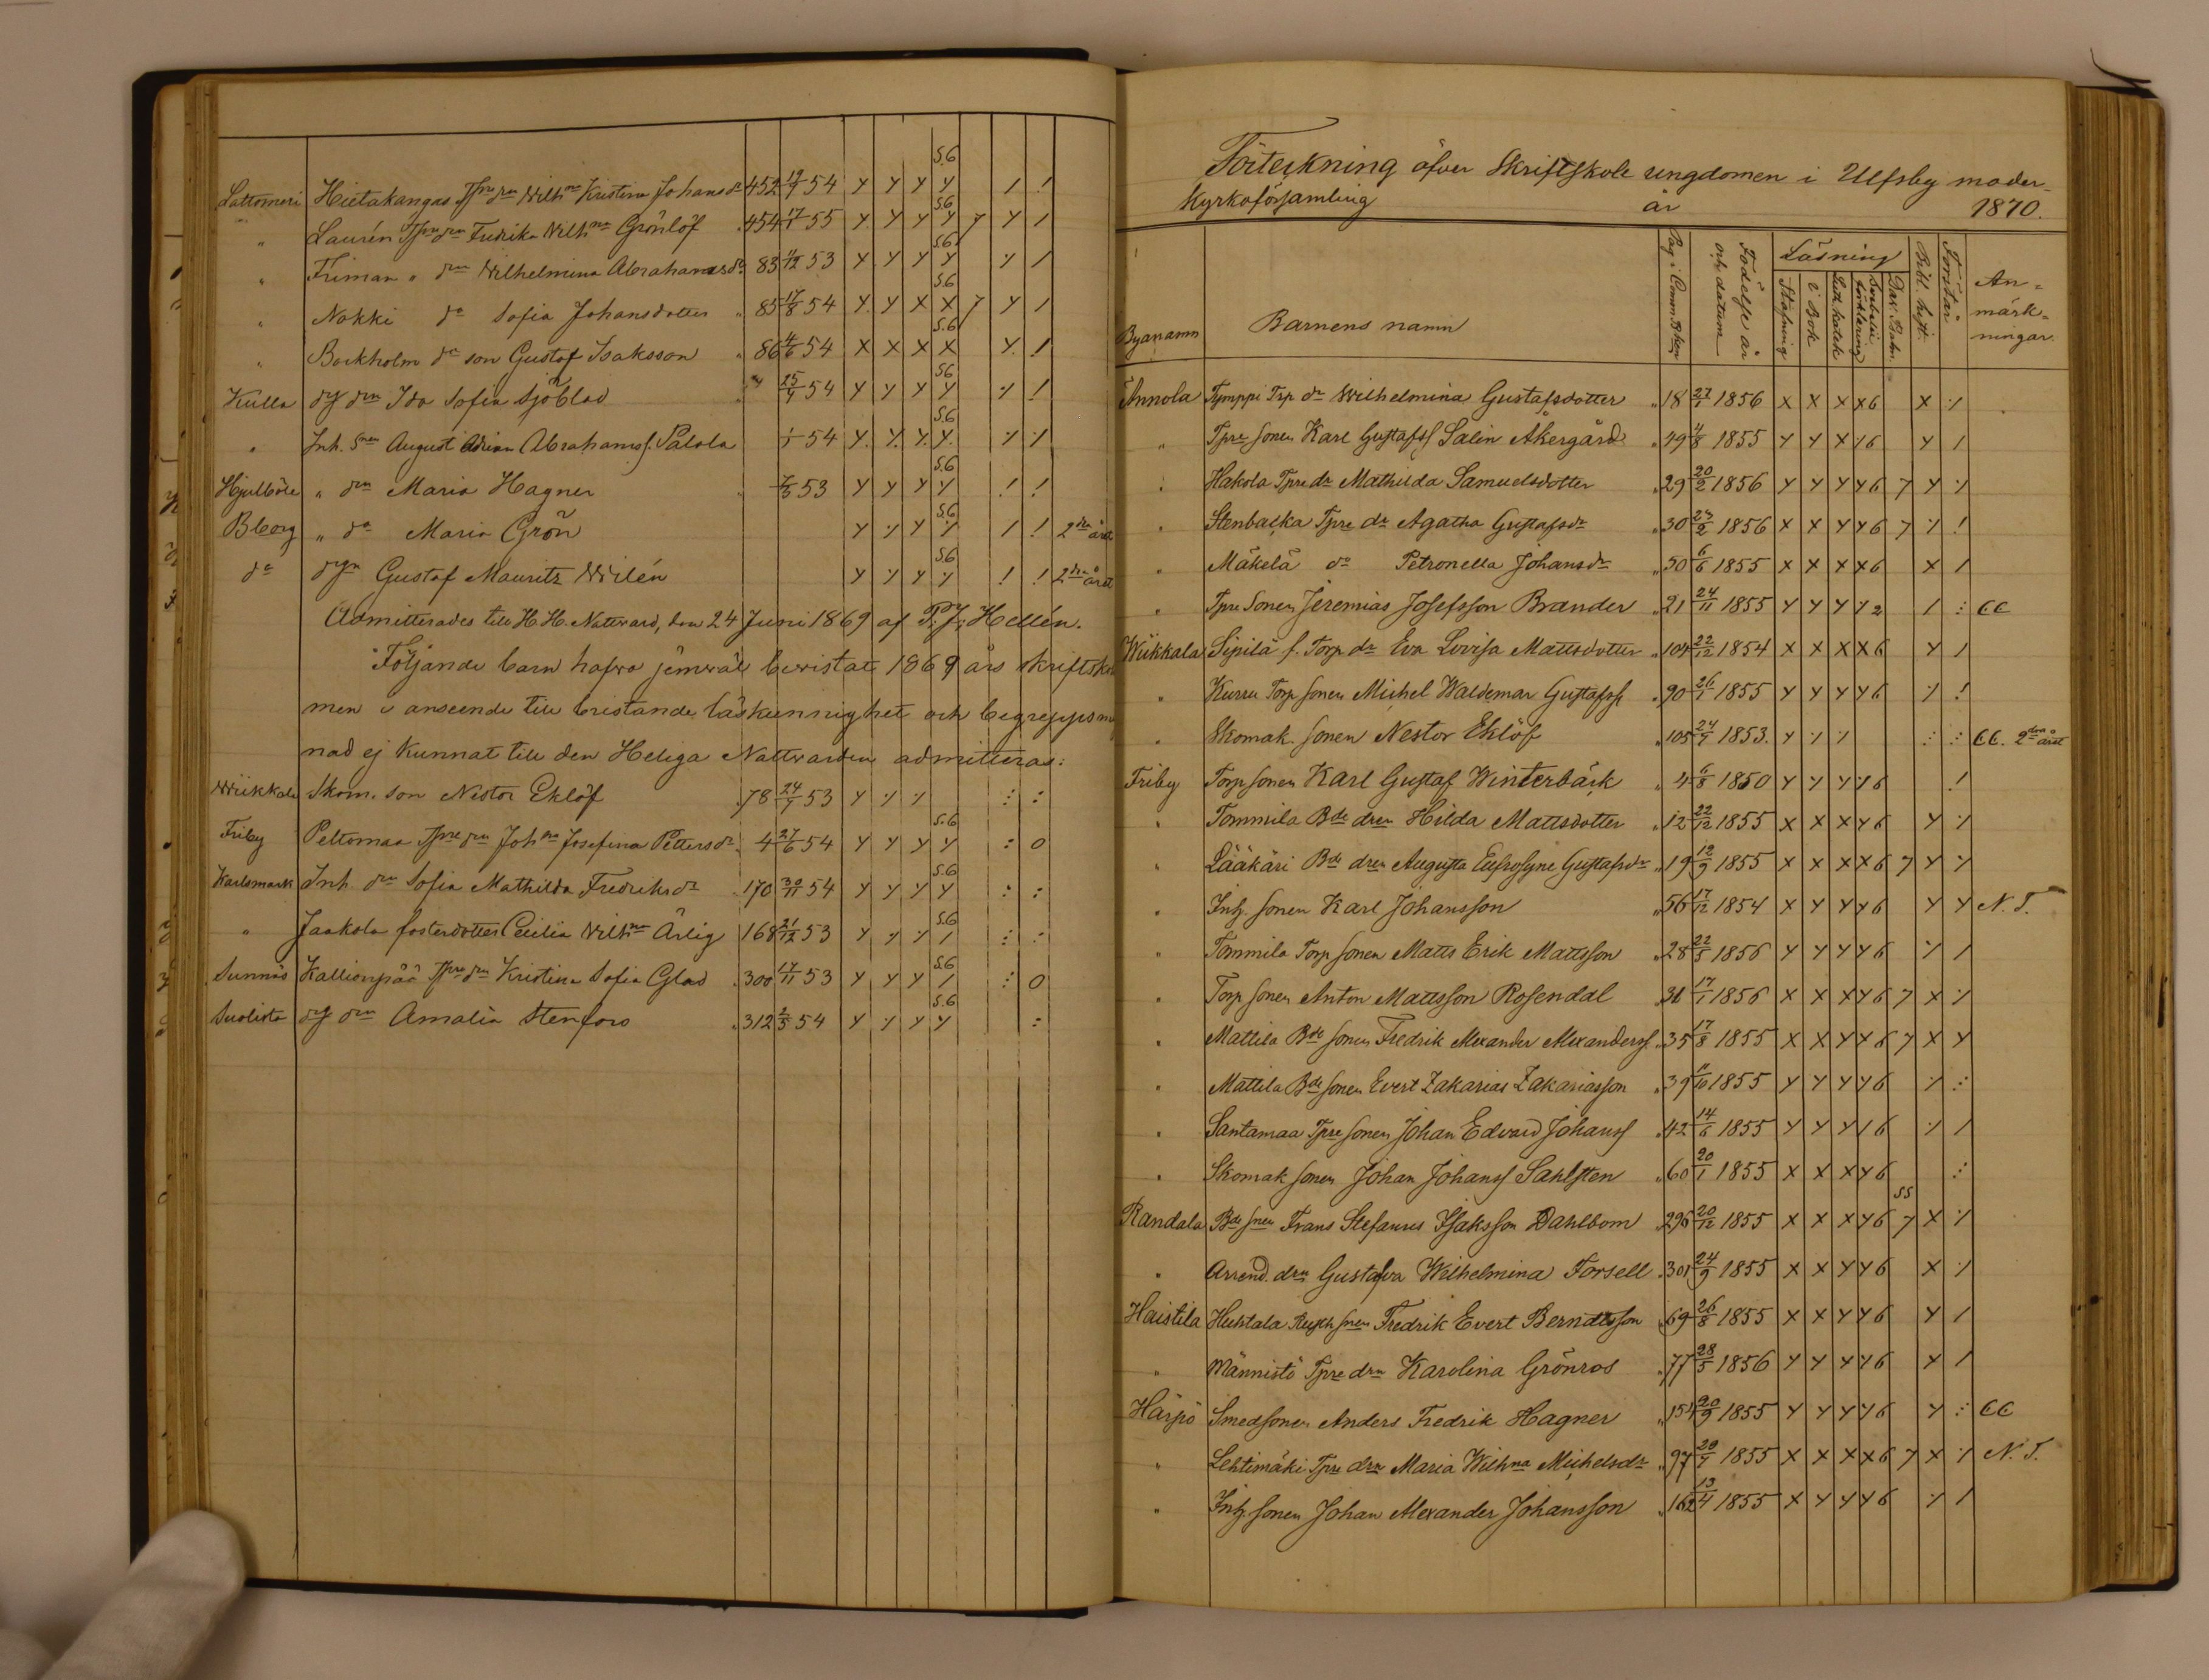 S.6
Lattomeri Hietakangas Tpre drn Wilhna Kristina Johansdr 452 19/9 54 y y y y / !
S.6
" Laurén Tpre drn Fredrika Wilhna Grönlöf 454 17/9 55 y y y y 7 y /
S.6
" Friman " drn Wilhelmina Abrahamsdr 83 11/12 53 y y y y ⁒ /
S.6
" Nokki do Sofia Johansdotter " 85 17/8 54 y y x x 7 y /
S.6
" Bockholm do son Gustaf Isaksson " 86 4/6 54 x x x x y !
S.6
Kulla drg drn Ida Sofia Sjöblad " 25/9 54 y y y y ⁒ !
S.6
" Inh. snen August Adrian Abrahamss. Palola 1/1 54 y ⁒ ⁒ y ⁒ ⁒
S.6
Hjulböle " drn Maria Hagner 53 y y y y ! !
S.6
Bborg " do Maria Grön y ⁒ y ⁒ / ! 2dra året
S.6
do drgn Gustaf Mauritz Wilén y ⁒ y ⁒ ! ! 2dra året
Admitterades till H. H. Nattvard, den 24 Juni 1869 af P. J. Hellén.
Följande barn hafva jemväl bevistat 1869 års skriftsko
men i anseende till bristande läskunnighet och begreppsmog
nad ej kunnat till den Heliga Nattvarden admitteras:
Wiikkala Skom. son Nestor Eklöf 78 24/9 53 y ⁒ ⁒ : :
S.6
Friby Peltomaa Tpre drn Johna Josefina Pettersdr 4 27/6 54 y y y y : 0
S.6
Karlsmark Inh. drn Sofia Mathilda Fredriksdr 170 30/11 54 y y y y : :
S.6
" Jaakola fosterdotter Cecilia Wilhna Ärlig 168 21/12 53 y ⁒ ⁒ / : :
S.6
Sunnäs Kallionpää Tpre drn Kristina Sofia Glad 300 17/11 53 y y y / : 0
S.6
Suolista drg drn Amalia Stenfors 312 2/5 54 y ⁒ y y :
Förteckning öfver Skriftskole ungdomen i Ulfsby moder-
kyrkoförsamling år 1870.
Byanamn Barnens namn Pag. i Comm. Bken Födelse år och datum Läsning Stafning i Bok Luth. Katek. Svebelii förklaring Dav. Psalm. Bibl. hist. Förstår An-märk-ningar.
Annola Tymppi Trp. dr Wilhelmina Gustafsdotter " 18 27/1 1856 x x x x 6 x ⁒
" Tpre sonen Karl Gustafss Salin Åkergård " 49 4/8 1855 y y x ⁒ 6 y /
" Hakola Tpre dr Mathilda Samuelsdotter " 29 20/2 1856 y y y y 6 7 y ⁒
" Stenbacka Tpre dr Agatha Gustafsdr " 30 23/2 1856 x x y y 6 7 ⁒ !
" Mäkelä do Petronella Johansdr " 50 6/6 1855 x x x x 6 x /
" Tpre Sonen Jeremias Josefsson Brander " 21 24/11 1855 y y y y 2 / : CC
Wiikkala Sipilä f. Torp dr Eva Lovisa Mattsdotter " 104 22/12 1854 x x x x 6 y /
" Kurru Torp sonen Michel Waldemar Gustafss " 90 26/1 1855 y y y y 6 ⁒ !
" Skomak. sonen Nestor Eklöf " 105 24/9 1853. y ⁒ ⁒ : : CC. 2dra året
Friby Torp sonen Karl Gustaf Winterbäck " 4 6/8 1850 y y y ⁒ 6 !
" Tommila Bde dren Hilda Mattsdotter " 12 22/12 1855 x x x y 6 y ⁒
" Lääkäri Bde dren Augusta Eufrosyne Gustafsdr " 19 12/9 1855 x x x x 6 7 y ⁒
" Inh. sonen Karl Johansson " 56 17/12 1854 x y y y 6 y y N. T.
" Tommila Torp sonen Matts Erik Mattsson " 28 22/5 1856 y y y y 6 ⁒ /
" Torp sonen Anton Mattsson Rosendal 31 17/1 1856 x x x y 6 7 x ⁒
" Mattila Bde sonen Fredrik Alexander Alexanderss. " 35 17/8 1855 x x y y 6 7 x y
" Mattila Bde sonen Evert Zakarias Zakariasson " 39 11/10 1855 y y y y 6 ⁒ :
" Santamaa Tpre sonen Johan Edvard Johanss " 42 14/6 1855 y y y / 6 ⁒ /
" Skomak sonen Johan Johanss Sahlsten " 60 20/1 1855 x x x y 6 :
SS
Randala Bde snen Frans Stefanus Isaksson Dahlbom 296 20/12 1855 x x x y 6 7 x ⁒
" Arrend. drn Gustafva Wilhelmina Forsell " 301 24/9 1855 x x y y 6 x ⁒
Haistila Huhtala Rusth snen Fredrik Evert Berndtsson " 69 26/8 1855 x x y y 6 y /
" Männistö Tpre drn Karolina Grönros " 77 28/5 1856 y y y y 6 y /
Harjo Smedsonen Anders Fredrik Hagner " 151 20/9 1855 y y y y 6 y : CC
" Lehtimäki Tpre drn Maria Wilhna Michelsdr " 97 29/9 1855 x x x x 6 7 x ⁒ N. T.
" Inh. sonen Johan Alexander Johansson " 162 13/4 1855 x y y y 6 ⁒ /